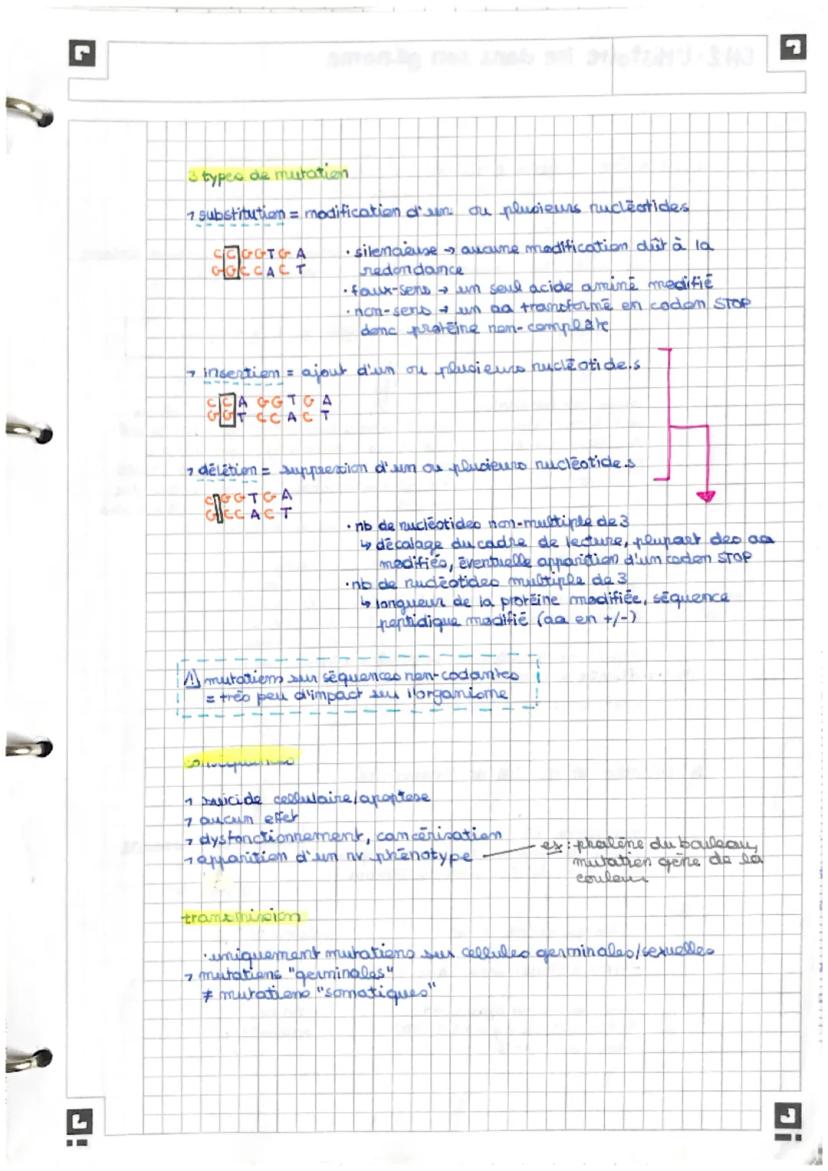 3 types de mutation
→ substitution = modification d'un ou plusieurs nucléotides
C C G G T G A
G G C C A C T
• silencieuse → aucune modification dût à la
redondance
• faux-sens → un seul acide aminé modifié
• non-sens → un aa transformé en codon STOP
donc protéine non-complète
→ insertion = ajout d'un ou plusieurs nucléotide.s
C C A G G T G A
G G T C C A C T
→ délétion = suppression d'un ou plusieurs nucléotide.s
C G G T G A
G C C A C T
• nb de nucléotides non-multiple de 3
↳ décalage du cadre de lecture, plupart des aa
modifiés, éventuelle apparition d'un codon STOP
• nb de nucléotides multiple de 3
↳ longueur de la protéine modifiée, séquence
peptidique modifié (aa en +/-)
⚠ mutations sur séquences non-codantes
= très peu d'impact sur l'organisme
→ suicide cellulaire/apoptose
→ aucun effet
→ dysfonctionnement, cancérisation
→ apparition d'un nv phénotype — ex : phalène du bouleau,
mutation gène de la
couleur
transmission
• uniquement mutations sur cellules germinales/sexuelles
→ mutations "germinales"
≠ mutations "somatiques"